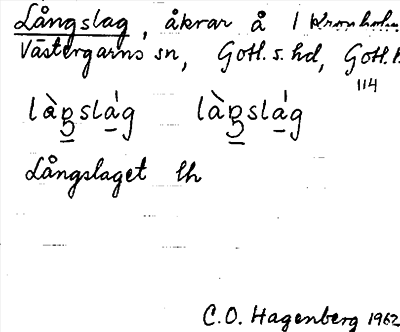 Långslag, åkrar å 1 Kronholm
Västergarns sn, Gotl. s. hd, Gotl. l.
114
Långslaget th
C.O. Hagenberg 1962